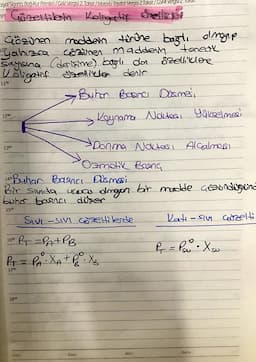 Çözeltilerin Koligatif Özellikleri
Çözünen maddenin türüne bağlı olmayıp
yalnızca çözünen maddenin tanecik
sayısına (derişime) bağlı olan özelliklere
Koligatif özellikler denir
→ Buhar Basıncı Düşmesi
→ Kaynama Noktası Yükselmesi
→ Donma Noktası Alçalması
→ Osmotik Basınç
Buhar Basıncı Düşmesi
Bir sıvıda uçucu olmayan bir madde çözündüğünde
buhar basıncı düşer
Sıvı - sıvı çözeltilerde
Katı - sıvı çözelti
P_T = P_A + P_B
P_T = P_A° . X_A + P_B° . X_B
P_T = P_su° . X_su